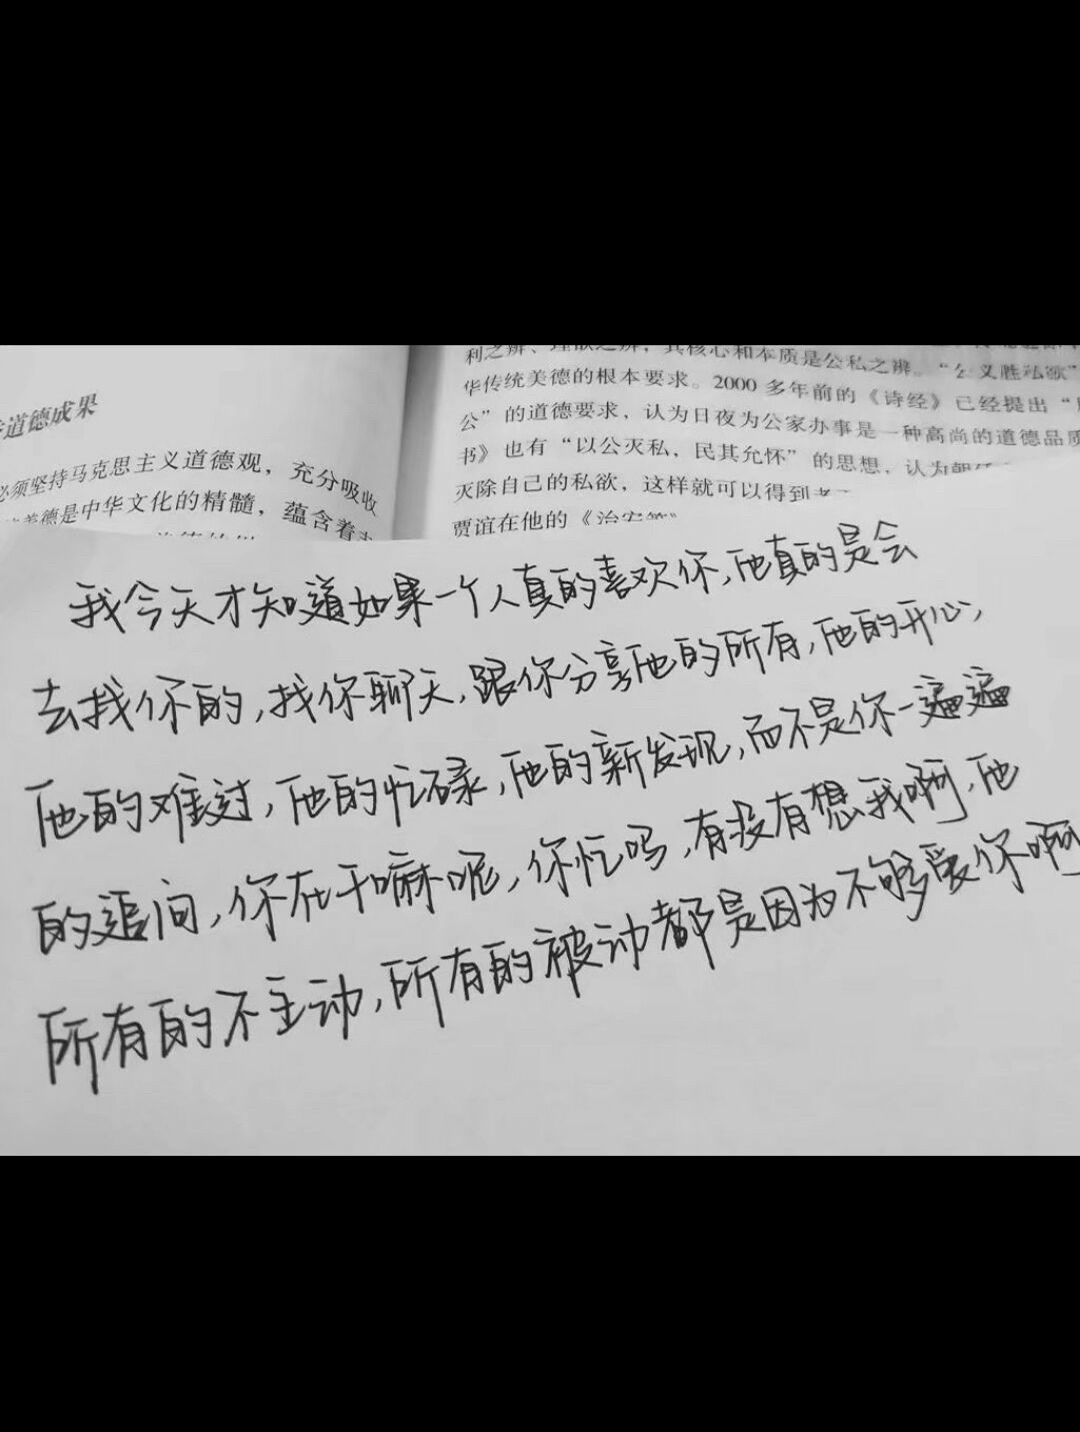 道德成果
必须坚持马克思主义道德观，充分吸收
美德是中华文化的精髓，蕴含着
利之辨、理欲之辨，其核心和本质是公私之辨。“公义胜私欲”
华传统美德的根本要求。2000 多年前的《诗经》已经提出“
公”的道德要求，认为日夜为公家办事是一种高尚的道德品质
书》也有“以公灭私，民其允怀”的思想，认为朝
灭除自己的私欲，这样就可以得到
贾谊在他的《治安策》
我今天才知道如果一个人真的喜欢你，他真的是会
去找你的，找你聊天，跟你分享他的所有，他的开心，
他的难过，他的忙碌，他的新发现，而不是你一遍遍
的追问，你在干嘛呢，你忙吗，有没有想我啊，他
所有的不主动，所有的被动都是因为不够爱你啊